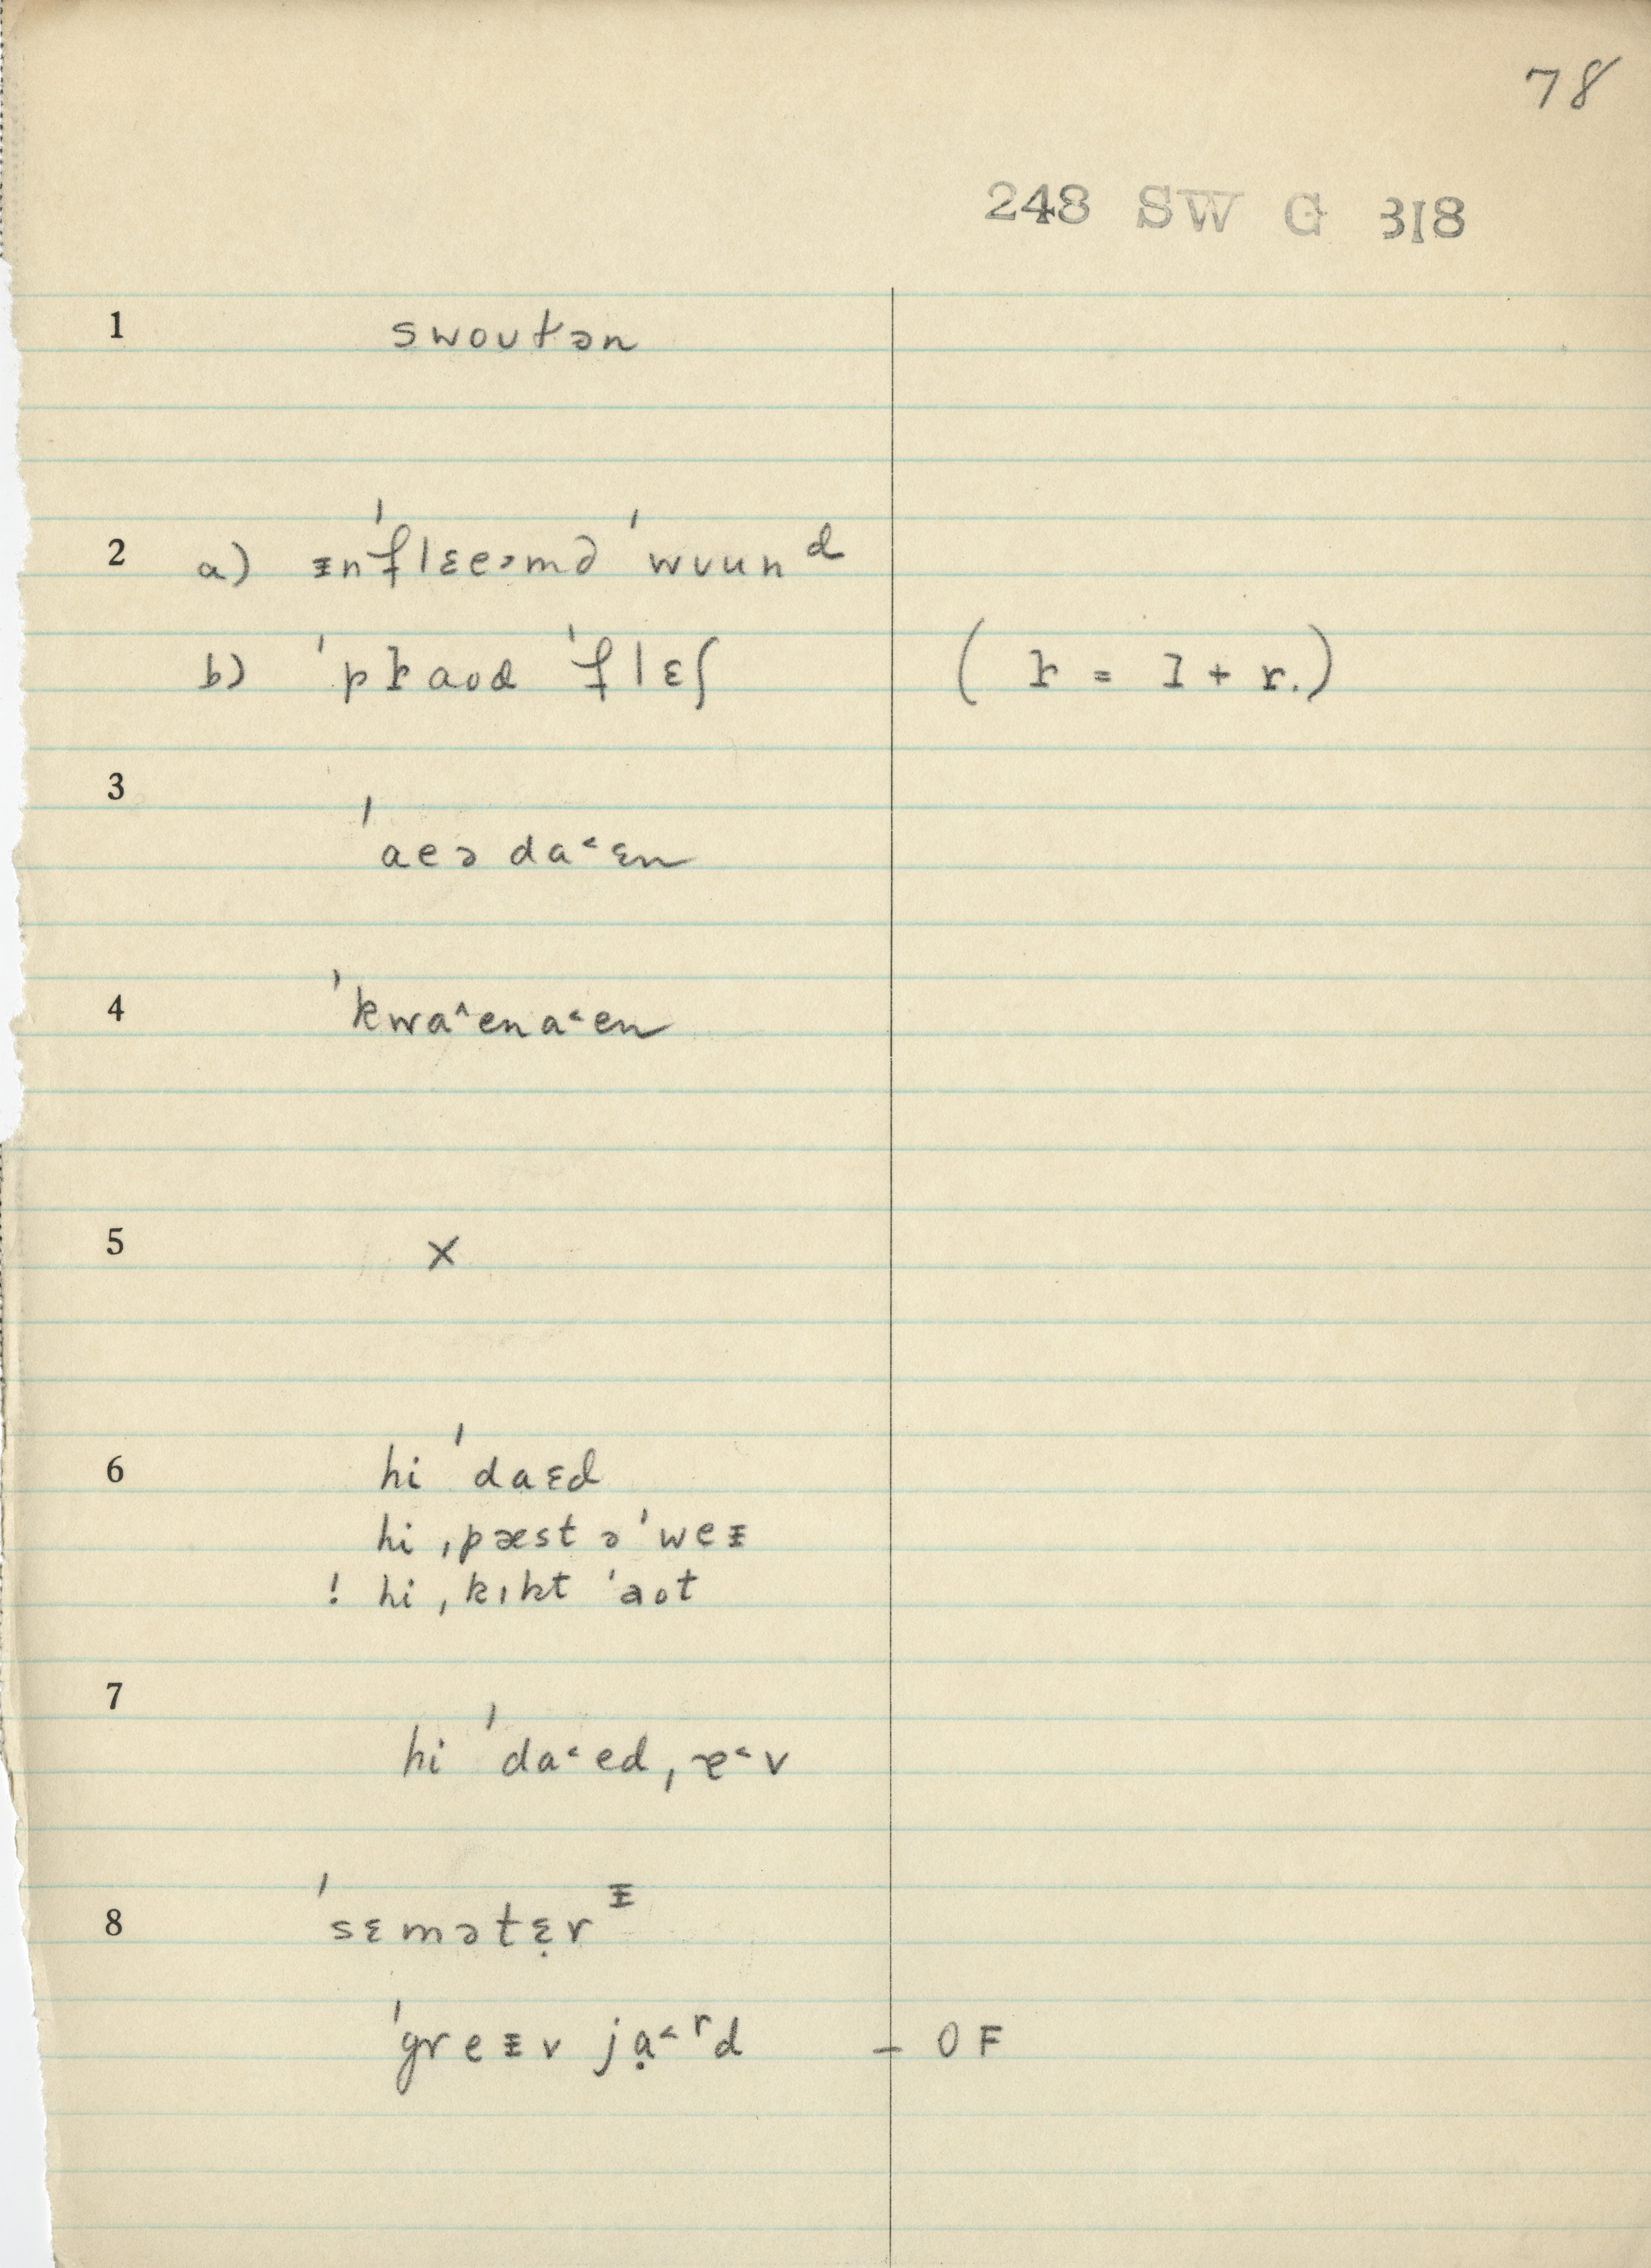 78
248 SW G 318
1 swoutən
2 a) ᵻnˈflɛeəmdˈwuund
b) ˈpɽaodˈflɛʃ (ɽ = ɪ + r.)
3 ˈaeə da˂ɛn
4 ˈkwa˄ena˂en
5 X
6 hi ˈdaɛd
hi ˌpæst əˈweᵻ
! hi ˌkɪkt ˈaot
7 hi ˈda˂ed ˌɐ˂v
8 ˈsɛmətɛ̣rᵻ
ˈgreᵻv jạ˂ʳd – OF